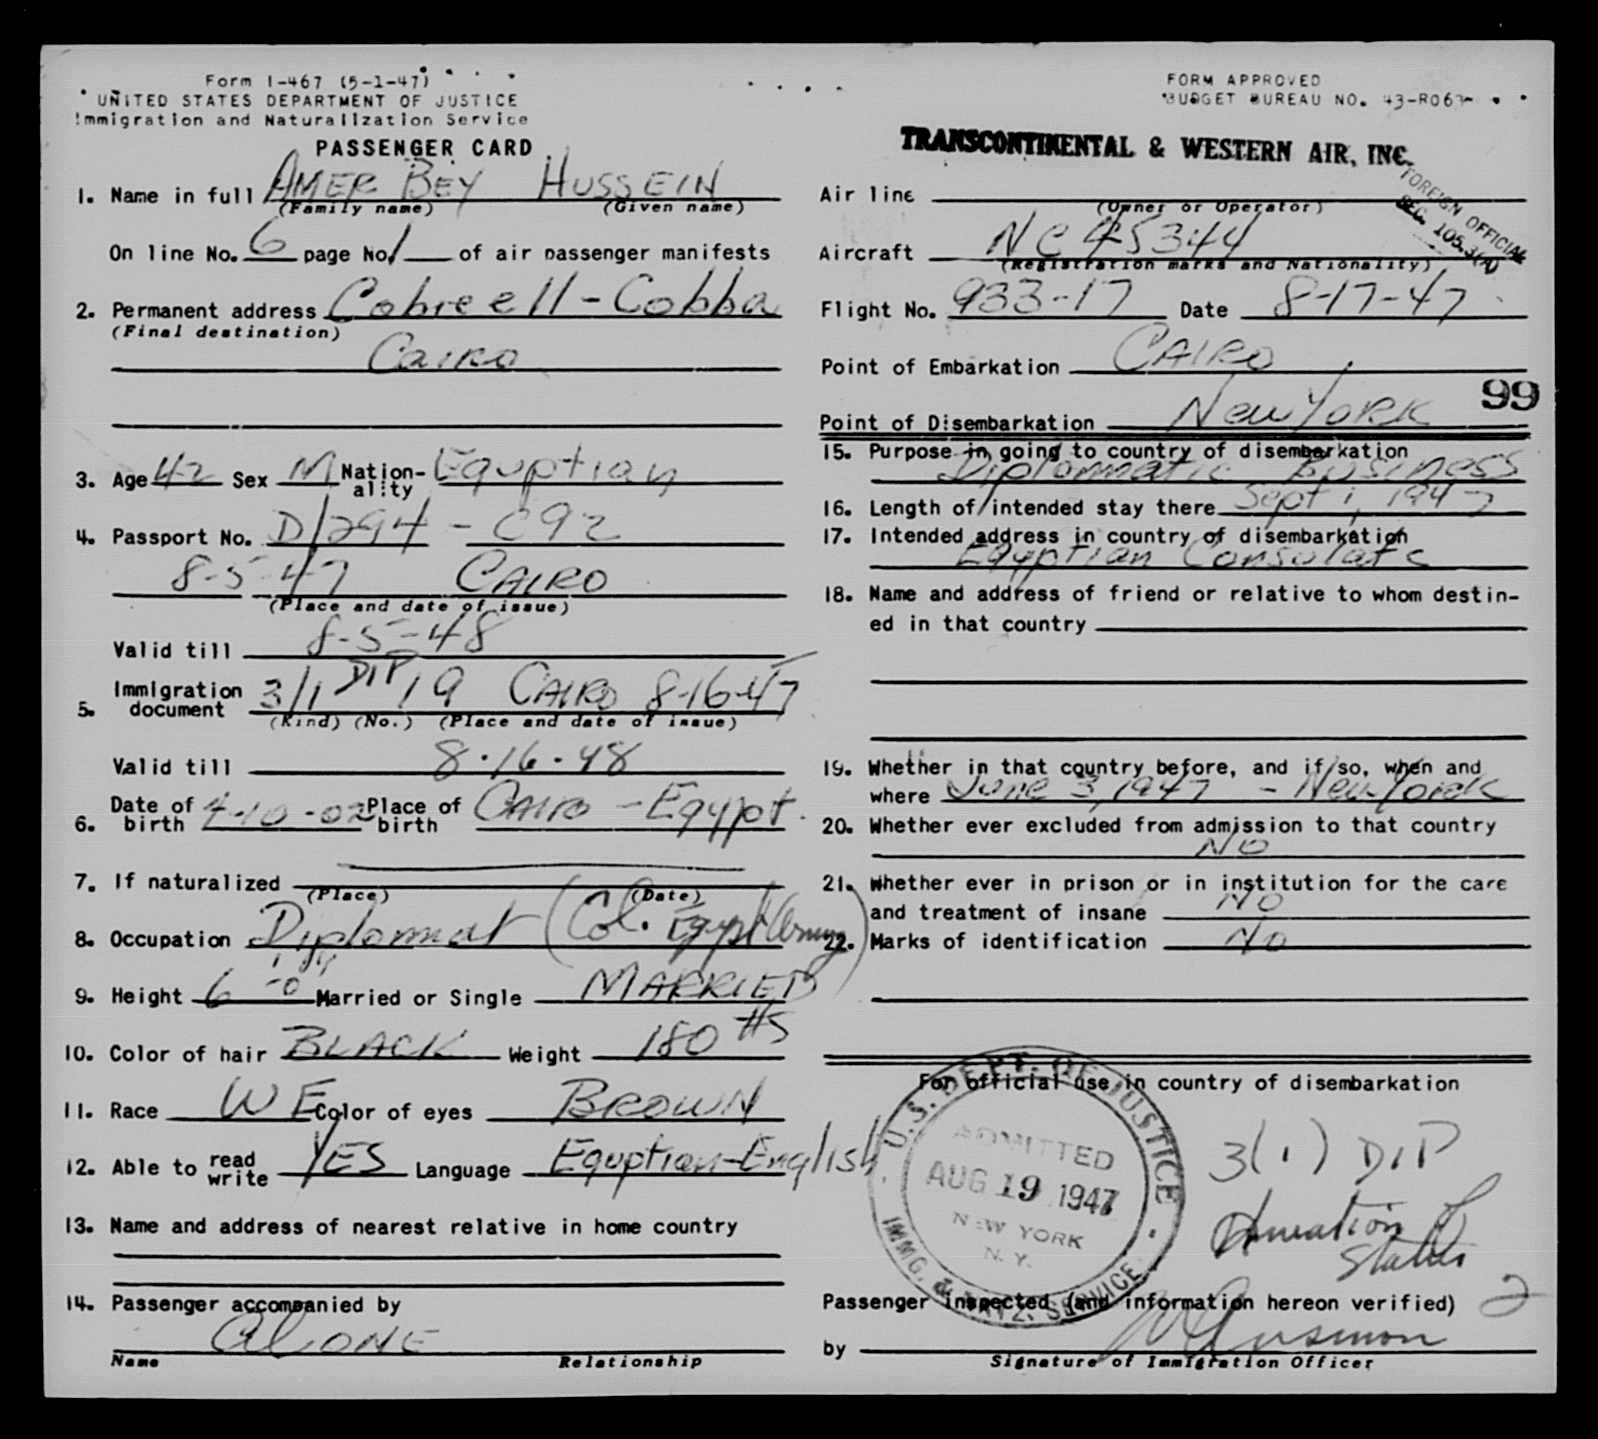 Form I-467 (5-1-47)
UNITED STATES DEPARTMENT OF JUSTICE
Immigration and Naturalization Service
PASSENGER CARD
1. Name in full AMER BEY HUSSEIN
(Family name) (Given name)
On line No. 6 page No. 1 of air passenger manifests
2. Permanent address Cobreell-Cobba
(Final destination)
Cairo
3. Age 42 Sex M Nation-ality Eguptian
4. Passport No. D/294 - C92
8-5-47 CAIRO
(Place and date of issue)
Valid till 8-5-48
5. Immigration document 3/1 DIP 19 CAIRO 8-16-47
(Kind) (No.) (Place and date of issue)
Valid till 8-16-48
6. Date of birth 4-10-02 Place of birth CAIRO - Egypt.
7. If naturalized
(Place) (Date)
8. Occupation Diplomat (Col. Egypt Army)
9. Height 6'-0" Married or Single MARRIED
10. Color of hair BLACK Weight 180 #s
11. Race WE Color of eyes BROWN
12. Able to read write YES Language Eguptian-English
13. Name and address of nearest relative in home country
14. Passenger accompanied by
alone
Name Relationship
FORM APPROVED
BUDGET BUREAU NO. 43-R063
TRANSCONTINENTAL & WESTERN AIR, INC.
FOREIGN OFFICIAL
SEC. 105.3(A)
Air line
(Owner or Operator)
Aircraft NC 45344
(Registration marks and Nationality)
Flight No. 933-17 Date 8-17-47
Point of Embarkation CAIRO
99
Point of Disembarkation New York
15. Purpose in going to country of disembarkation
Diplommatic Business
16. Length of intended stay there Sept 1, 1947
17. Intended address in country of disembarkation
Egyptian Consulate
18. Name and address of friend or relative to whom destin-
ed in that country
19. Whether in that country before, and if so, when and
where June 3, 1947 - New York
20. Whether ever excluded from admission to that country
No
21. Whether ever in prison or in institution for the care
and treatment of insane No
22. Marks of identification No
For official use in country of disembarkation
U.S. DEPT. OF JUSTICE
ADMITTED
AUG 19 1947
NEW YORK
N.Y.
IMMG. & NATZ. SERVICE
3(1) DIP
Duration of
Status
2
Passenger inspected (and information hereon verified)
by
Signature of Immigration Officer